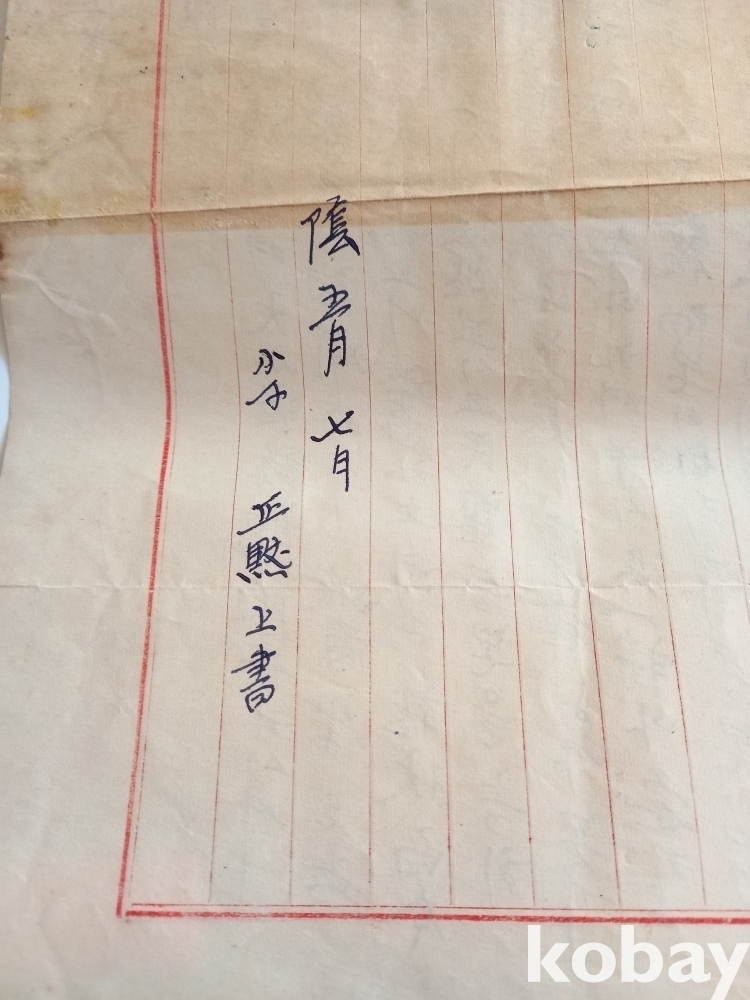 陰 五月 七日
小子 正黙 上書
kobay